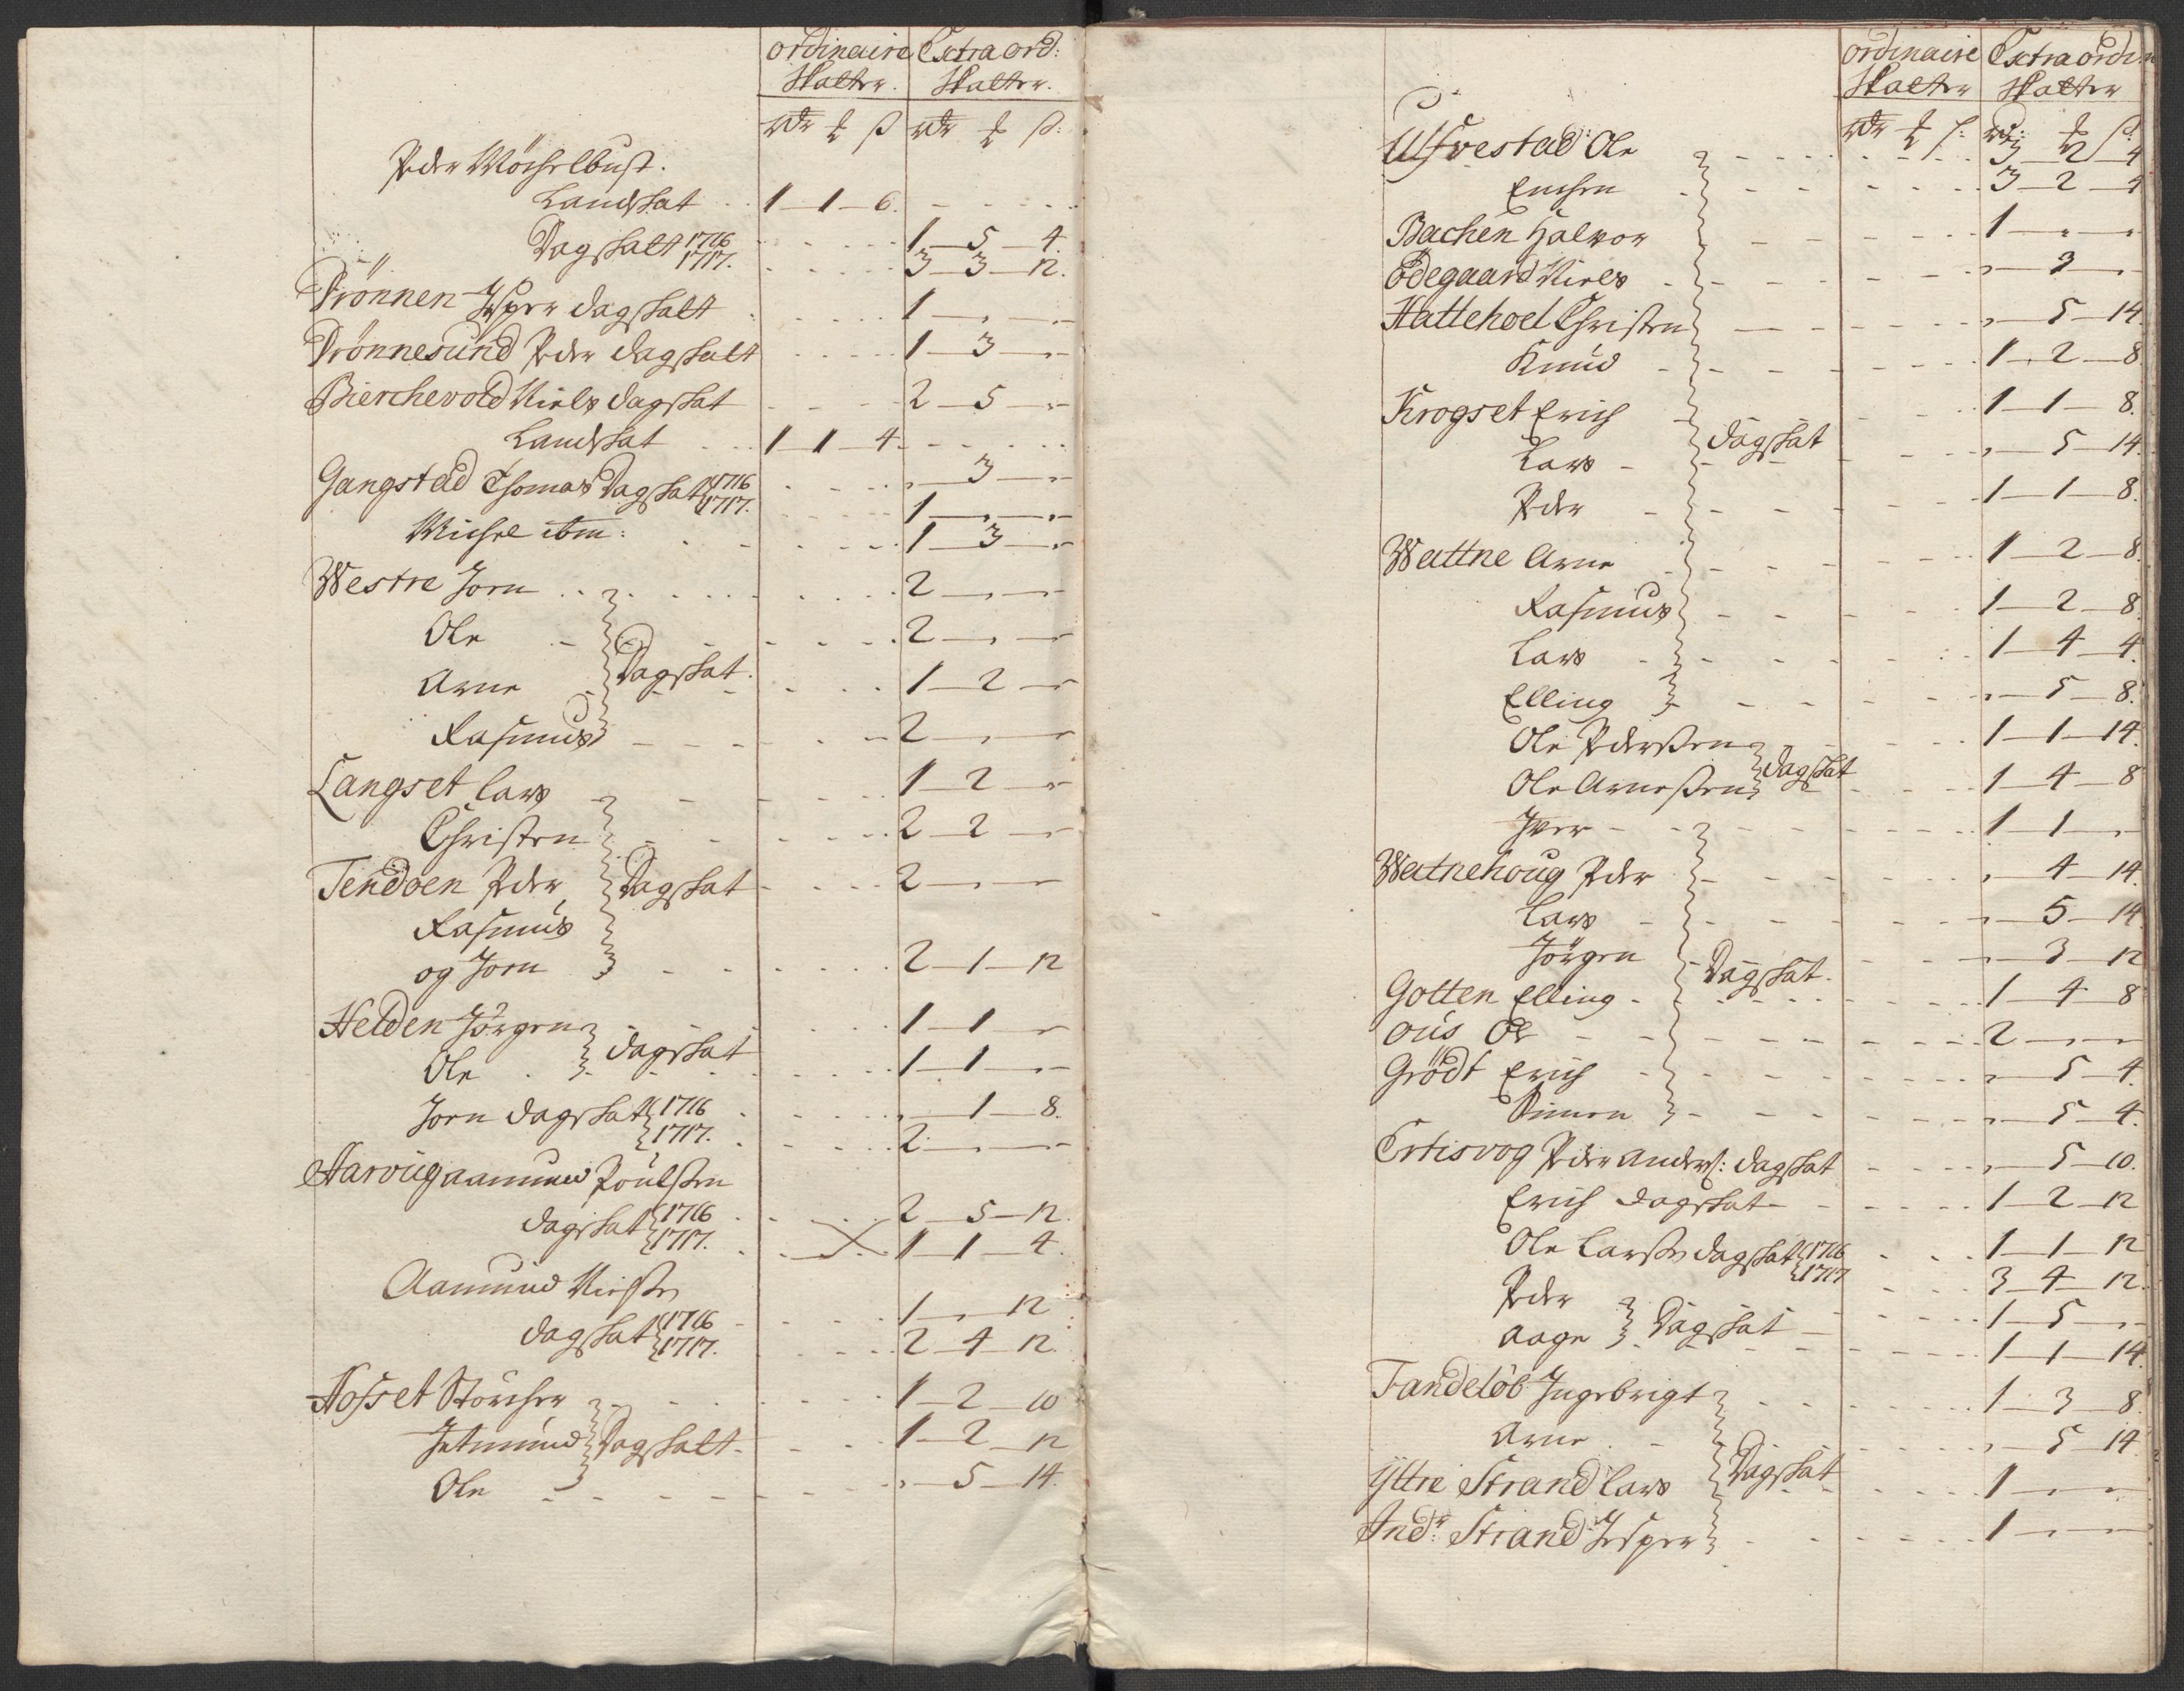 ordinaire Extraord:
Skatter. Skatter.
rdr ₰ ß rdr ₰ ß:
Peder Mörchelbust.
Landskat 1-1-6.
Dagskatt 1716 1-5-4.
1717. 3-3-12.
Drönnen Jesper dagskatt 1-"-"
Drönnesund Peder dagskatt 1-3-"
Bierchevold Niels dagskat 2-5-"
Landskat 1-1-4
Gangstad Thomas Dagskat 1716 "-3-"
1717. 1-"-"
Michel ibm: 1-3-"
Westre Jorn 2-"-"
Ole 2-"-"
Arne Dagskat. 1-2-"
Rasmus 2-"-"
Langset Lars 1-2-"
Christen 2-2-"
Tendöen Peder Dagskat 2-"-"
Rasmus
og Jorn 2-1-12
Helden Jörgen 1-1-"
Ole dagskat 1-1-"
Jorn dagskat 1716 "-1-8.
1717. 2-"-"
Harvig Aamund Poulsen
dagskat 1716 2-5-12.
1717. 1-1-4.
Aamund Nielsen
dagskat 1716 1-"-12
1717. 2-4-12.
Hofset Störcher 1-2-10
Jetmund Dagskatt 1-2-12
Ole "-5-14.
ordinaire Extraordin
Skatter Skatter
rdr ₰ ß: rdr: ₰ ß:
Ulfvestad Ole 3-2-4
3-2-4
Bachen Halvor 1-"-"
Ödegaard Niels "-3-"
Hattehoel Christen "-5-14.
Knud 1-2-8
Krogset Erich 1-1-8.
Lars dagskat "-5-14.
Peder 1-1-8.
Wattne Arne 1-2-8.
Rasmus 1-2-8.
Lars 1-4-4.
Elling "-5-8.
Ole Pedersen 1-1-14.
Ole Arnesen dagskat 1-4-8
Iver 1-1-"
Watnehoug Peder "-4-14.
Lars "-5-14
Jörgen Dagskat. "-3-12
Gotten Elling 1-4-8
Ous Ole 2-"-"
Grödt Erich "-5-4.
Simon "-5-4.
Ertisvog Peder Anders: dagskat "-5-10.
Erich dagskat 1-2-12
Ole Larsen dagskat 1716 1-1-12
1717 3-4-12.
Peder 1-5-"
Aage Dagskat 1-1-14.
Tandelöb Ingebrigt 1-3-8
Arne "-5-14
Yttre Strand Lars Dagskat 1-"-"
Indr: Strand Jesper 1-"-"